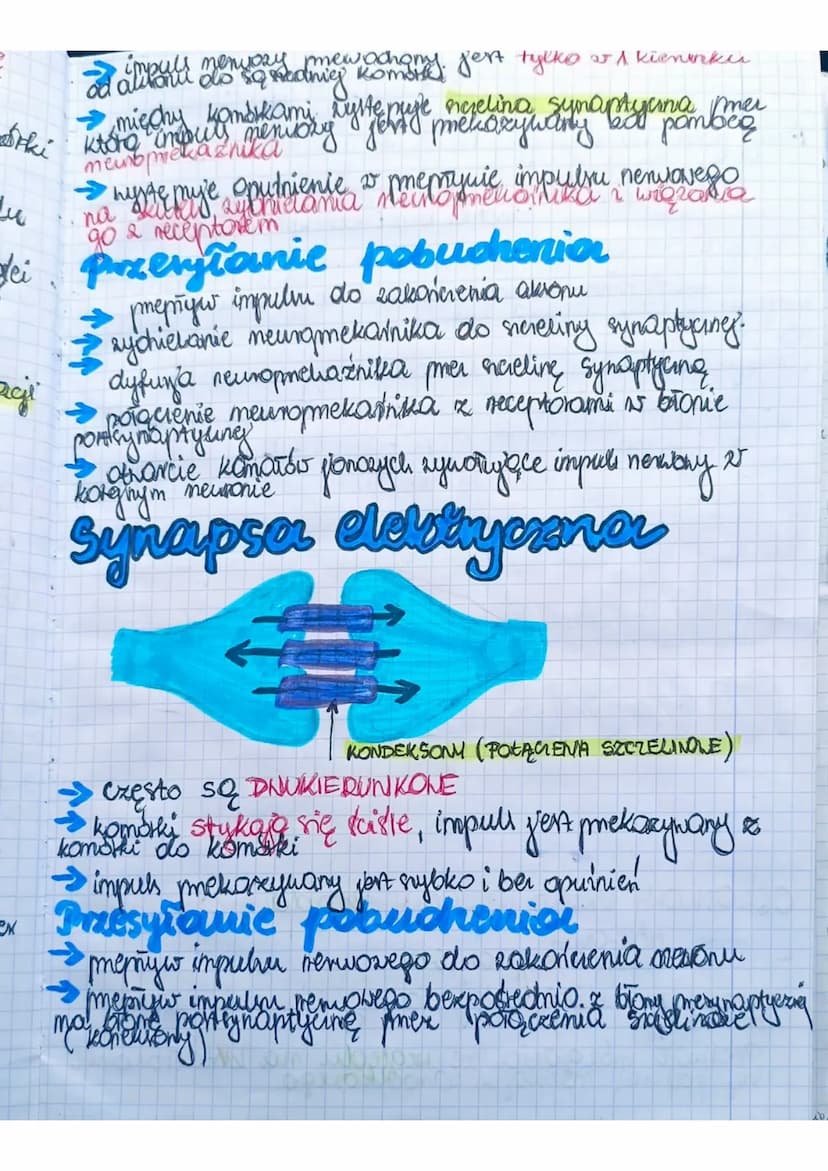 → impuls nerwowy przewodzony jest tylko w 1 kierunku
od aksonu do sąsiedniej komórki
→ między komórkami występuje szczelina synaptyczna przez
którą impuls nerwowy jest przekazywany za pomocą
neuroprzekaźnika
→ występuje opóźnienie w przepływie impulsu nerwowego
na skutek wydzielania neuroprzekaźnika i wiązania
go z receptorem
Przesyłanie pobudzenia
→ przepływ impulsu do zakończenia aksonu
→ wydzielanie neuroprzekaźnika do szczeliny synaptycznej.
→ dyfuzja neuroprzekaźnika przez szczelinę synaptyczną
→ połączenie neuroprzekaźnika z receptorami w błonie
postsynaptycznej
→ otwarcie kanałów jonowych wywołujące impuls nerwowy w
kolejnym neuronie
Synapsa elektryczna
KONDEKSONY (POŁĄCZENIA SZCZELINOWE)
→ często są DWUKIERUNKOWE
→ komórki stykają się ściśle, impuls jest przekazywany z
komórki do komórki
→ impuls przekazywany jest szybko i bez opóźnień
Przesyłanie pobudzenia
→ przepływ impulsu nerwowego do zakończenia neuronu
→ przepływ impulsu nerwowego bezpośrednio z błony presynaptycznej
na błonę postsynaptyczną przez połączenia szczelinowe
(koneksony)